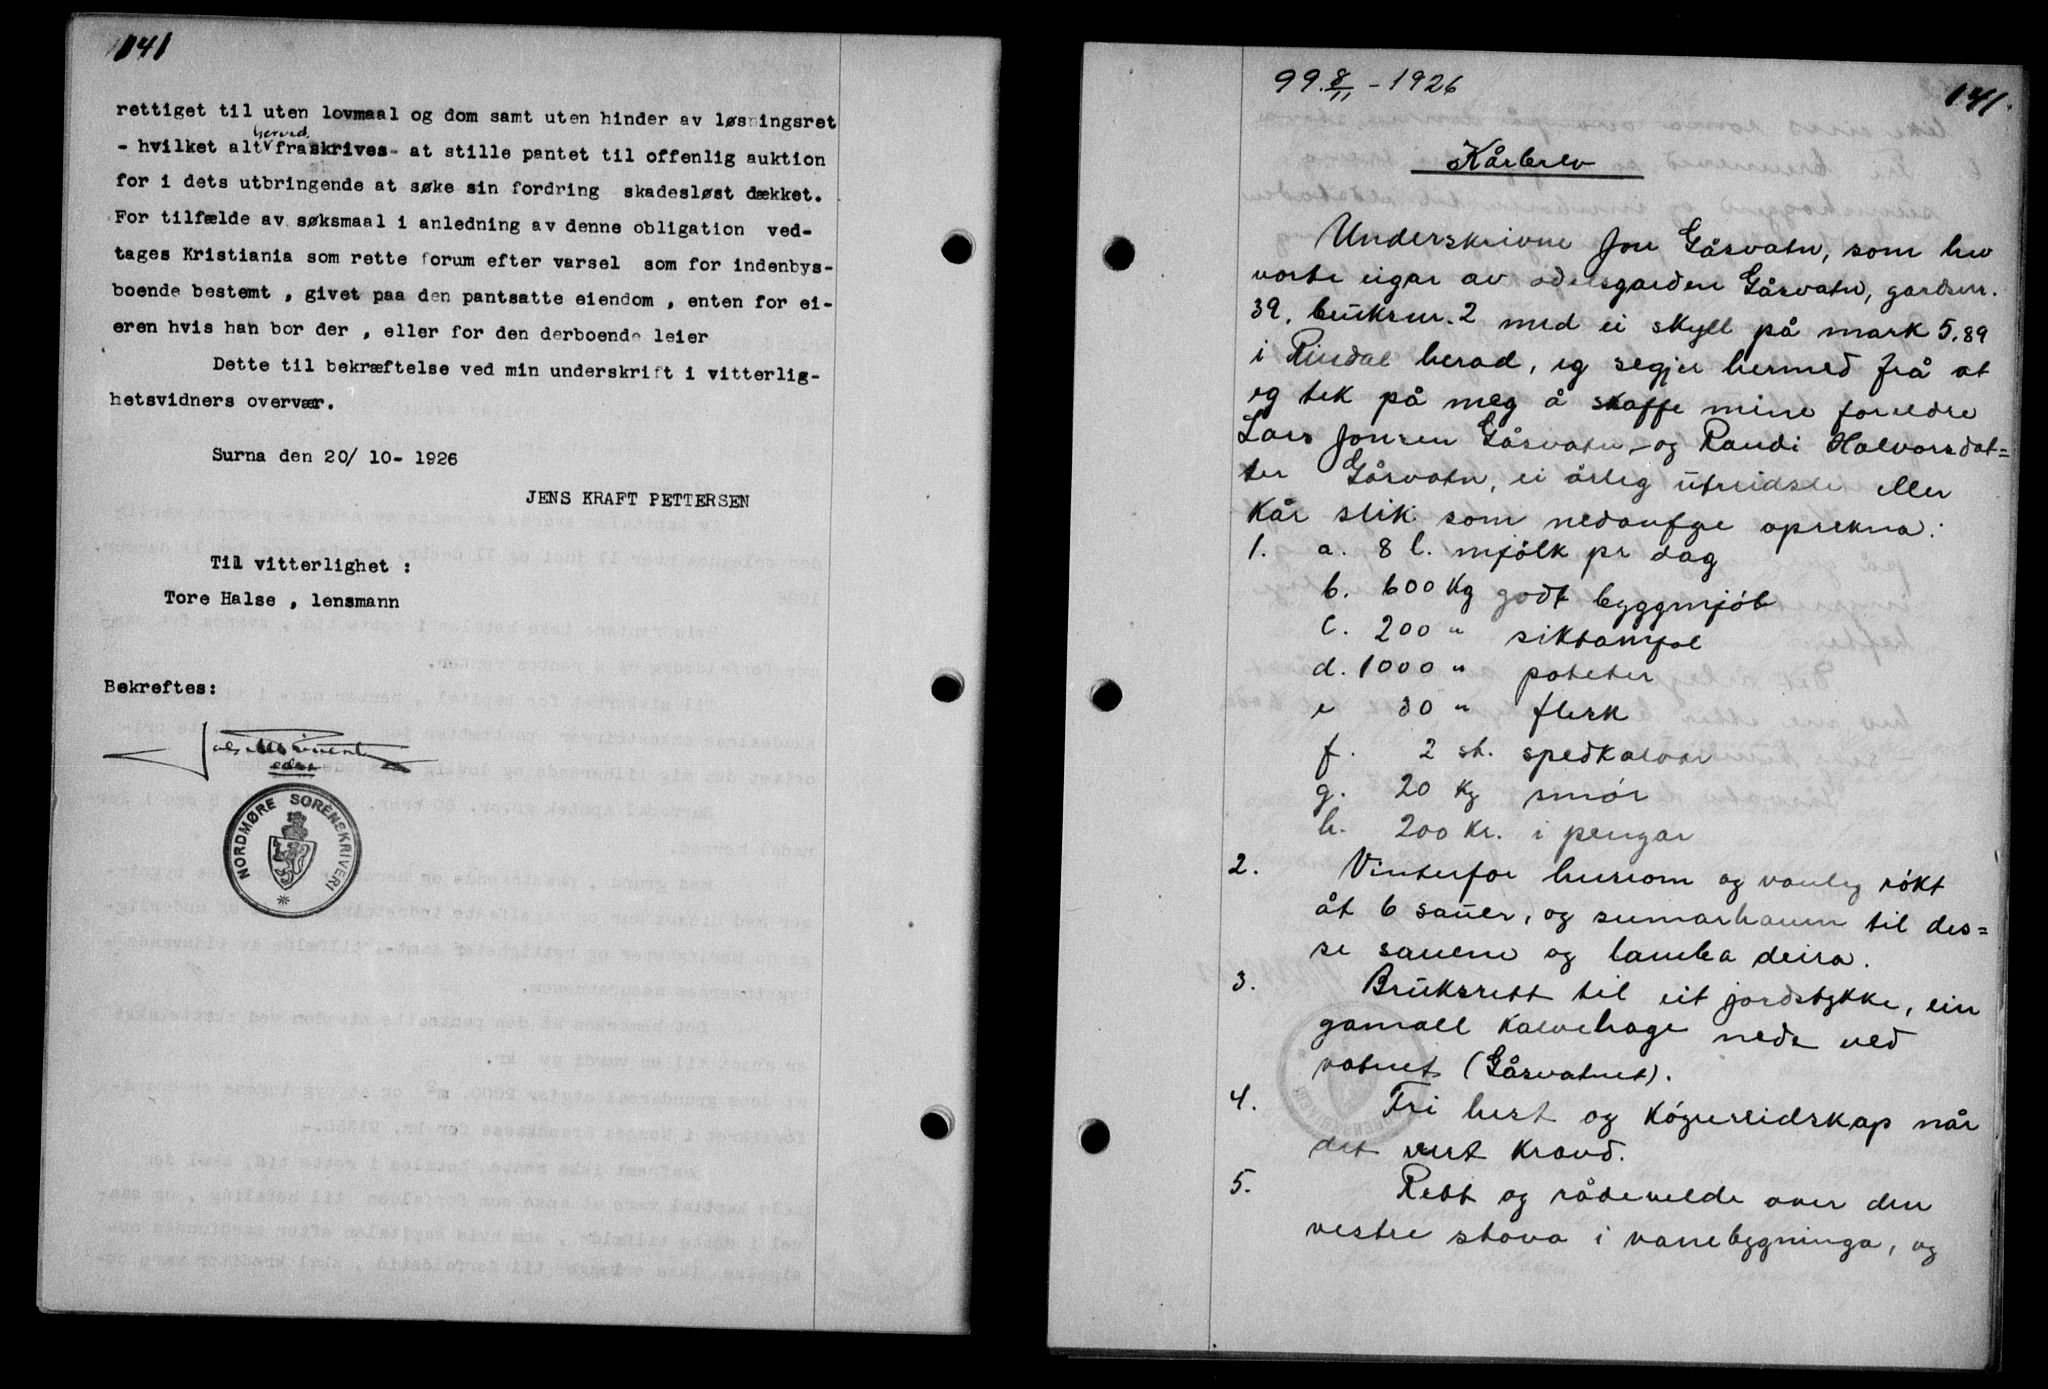 141
rettiget til uten lovmaal og dom samt uten hinder av løsningsret
herved
- hvilket alt fraskrives- at stille pantet til offenlig auktion
for i dets utbringende at søke sin fordring skadesløst dækket.
For tilfælde av søksmaal i anledning av denne obligation ved-
tages Kristiania som rette forum efter varsel som for indenbys-
boende bestemt , givet paa den pantsatte eiendom , enten for ei-
eren hvis han bor der , eller for den derboende leier
Dette til bekræftelse ved min underskrift i vitterlig-
hetsvidners overvær.
Surna den 20/ 10- 1926
JENS KRAFT PETTERSEN
Til vitterlighet :
Tore Halse , lensmann
Bekreftes:
NORDMØRE SORENSKRIVERI
99. 8/11 - 1926
141.
Kårbrev
Underskrivne Jon Gåsvatn, som hev
vorte eigar av odelsgarden Gåsvatn, gardsnr.
39, bruksnr. 2 med ei skyll på mark 5.89
i Rindal herad, eg segjer hermed frå at
eg tek på meg å skaffe mine foreldre
Lars Jonsen Gåsvatn og Randi Halvorsdat=
ter Gåsvatn, ei årleg utreidsle eller
Kår slik som nedanfye oprekna:
1. a. 8 l. mjólk pr dag
b. 600 Kg godt byggmjöl
c. 200 " siktamjøl
d. 1000 " poteter
e 80 " flesk
f. 2 st. spedkalvar
g. 20 Kg smór
h. 200 Kr. i pengar
2. Vinterfor husrom og vanleg rókt
åt 6 sauer, og sumarhamn til des=
se sauene og lamba deira.
3. Bruksrett til eit jordstykke, ein
gamall kalvehage nede ved
vatnet (Gåsvatnet).
4. Fri hest og kógrereidskap når
det vert kravd.
5. Rett og rådevelde over den
vestre stova i vånebygninga, og